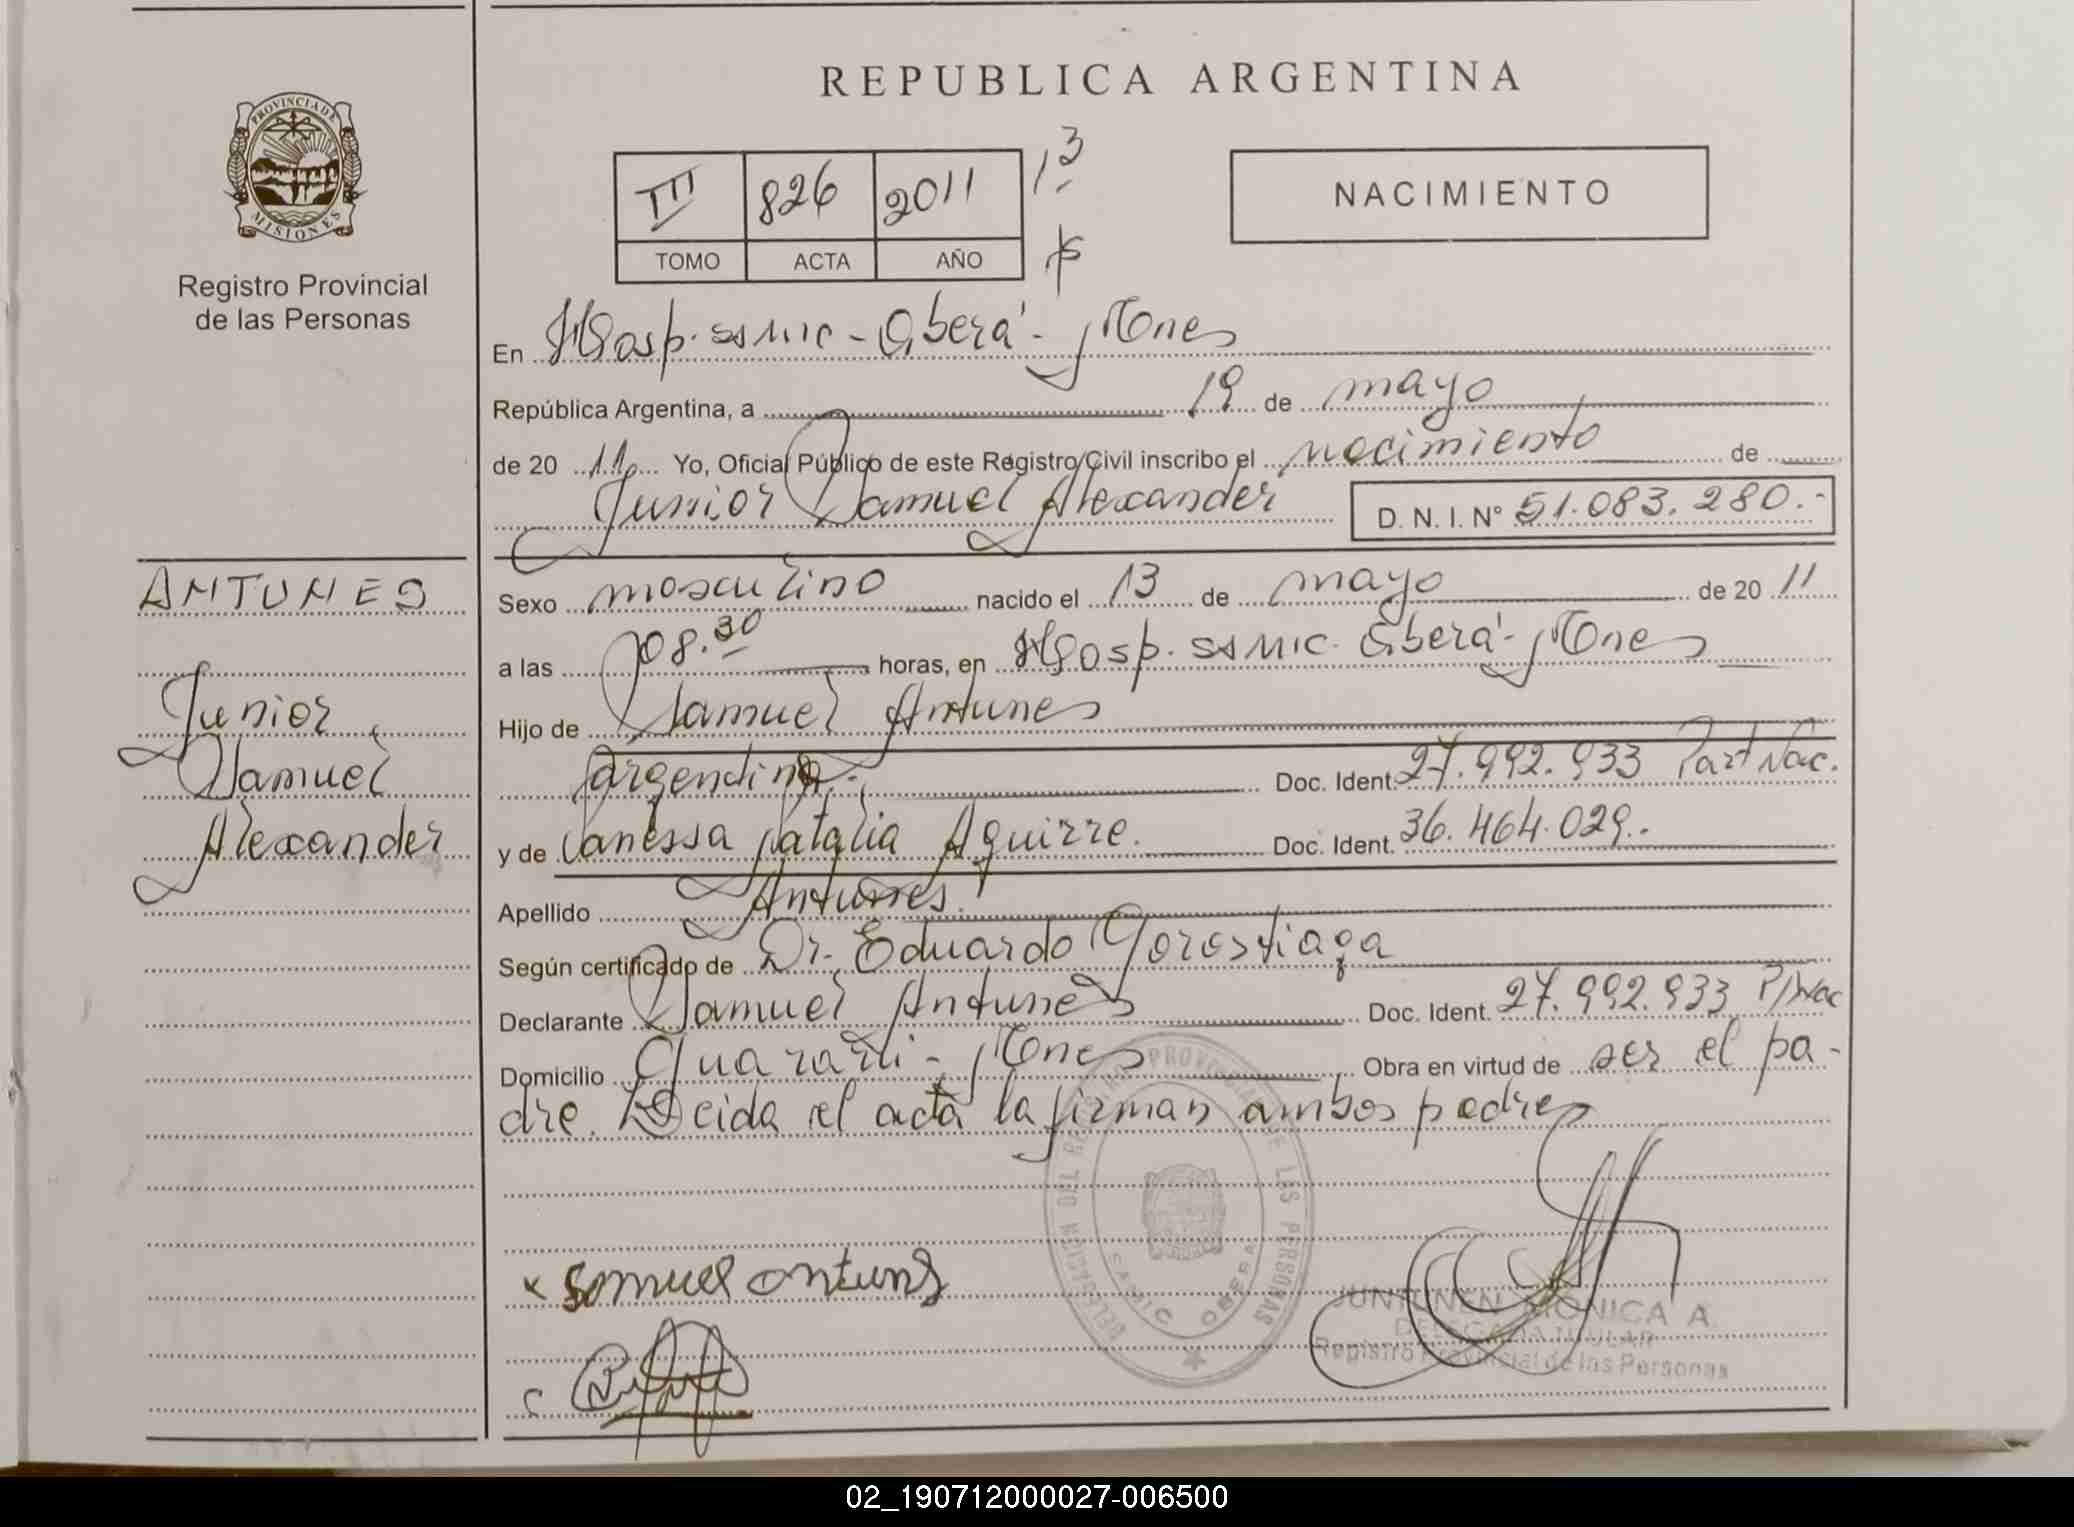 REPUBLICA ARGENTINA
PROVINCIA DE MISIONES
Registro Provincial
de las Personas
III 826 2011 13
TOMO ACTA AÑO
NACIMIENTO
En Hosp. SAMIC - Oberá - Mnes
República Argentina, a 19 de mayo
de 20 11 Yo, Oficial Público de este Registro Civil inscribo el nacimiento de
Junior Samuel Alexander D. N. I. Nº 51.083.280.-
ANTUNES
Junior
Samuel
Alexander
Sexo masculino nacido el 13 de mayo de 20 11
a las 08.30 horas, en Hosp. SAMIC. Oberá - Mnes
Hijo de Samuel Antunes
argentino. Doc. Ident. 27.992.933 Part Nac.
y de Vanessa Natalia Aguirre. Doc. Ident. 36.464.029.-
Apellido Antunes.
Según certificado de Dr. Eduardo Gorostiaga
Declarante Samuel Antunes Doc. Ident. 27.992.933 P/Nac
Domicilio Guaraní - Mnes Obra en virtud de ser el pa-
dre. Leida el acta la firman ambos padres
DELEGACION DEL REGISTRO PROVINCIAL DE LAS PERSONAS
SAMIC OBERA
x Samuel antuns
JUNTUNEN MONICA A
DELEGADA TITULAR
Registro Provincial de las Personas
02_190712000027-006500